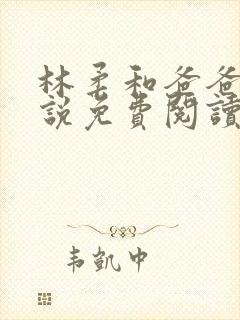 林柔和爸爸
說免費閱讀
韦凯中